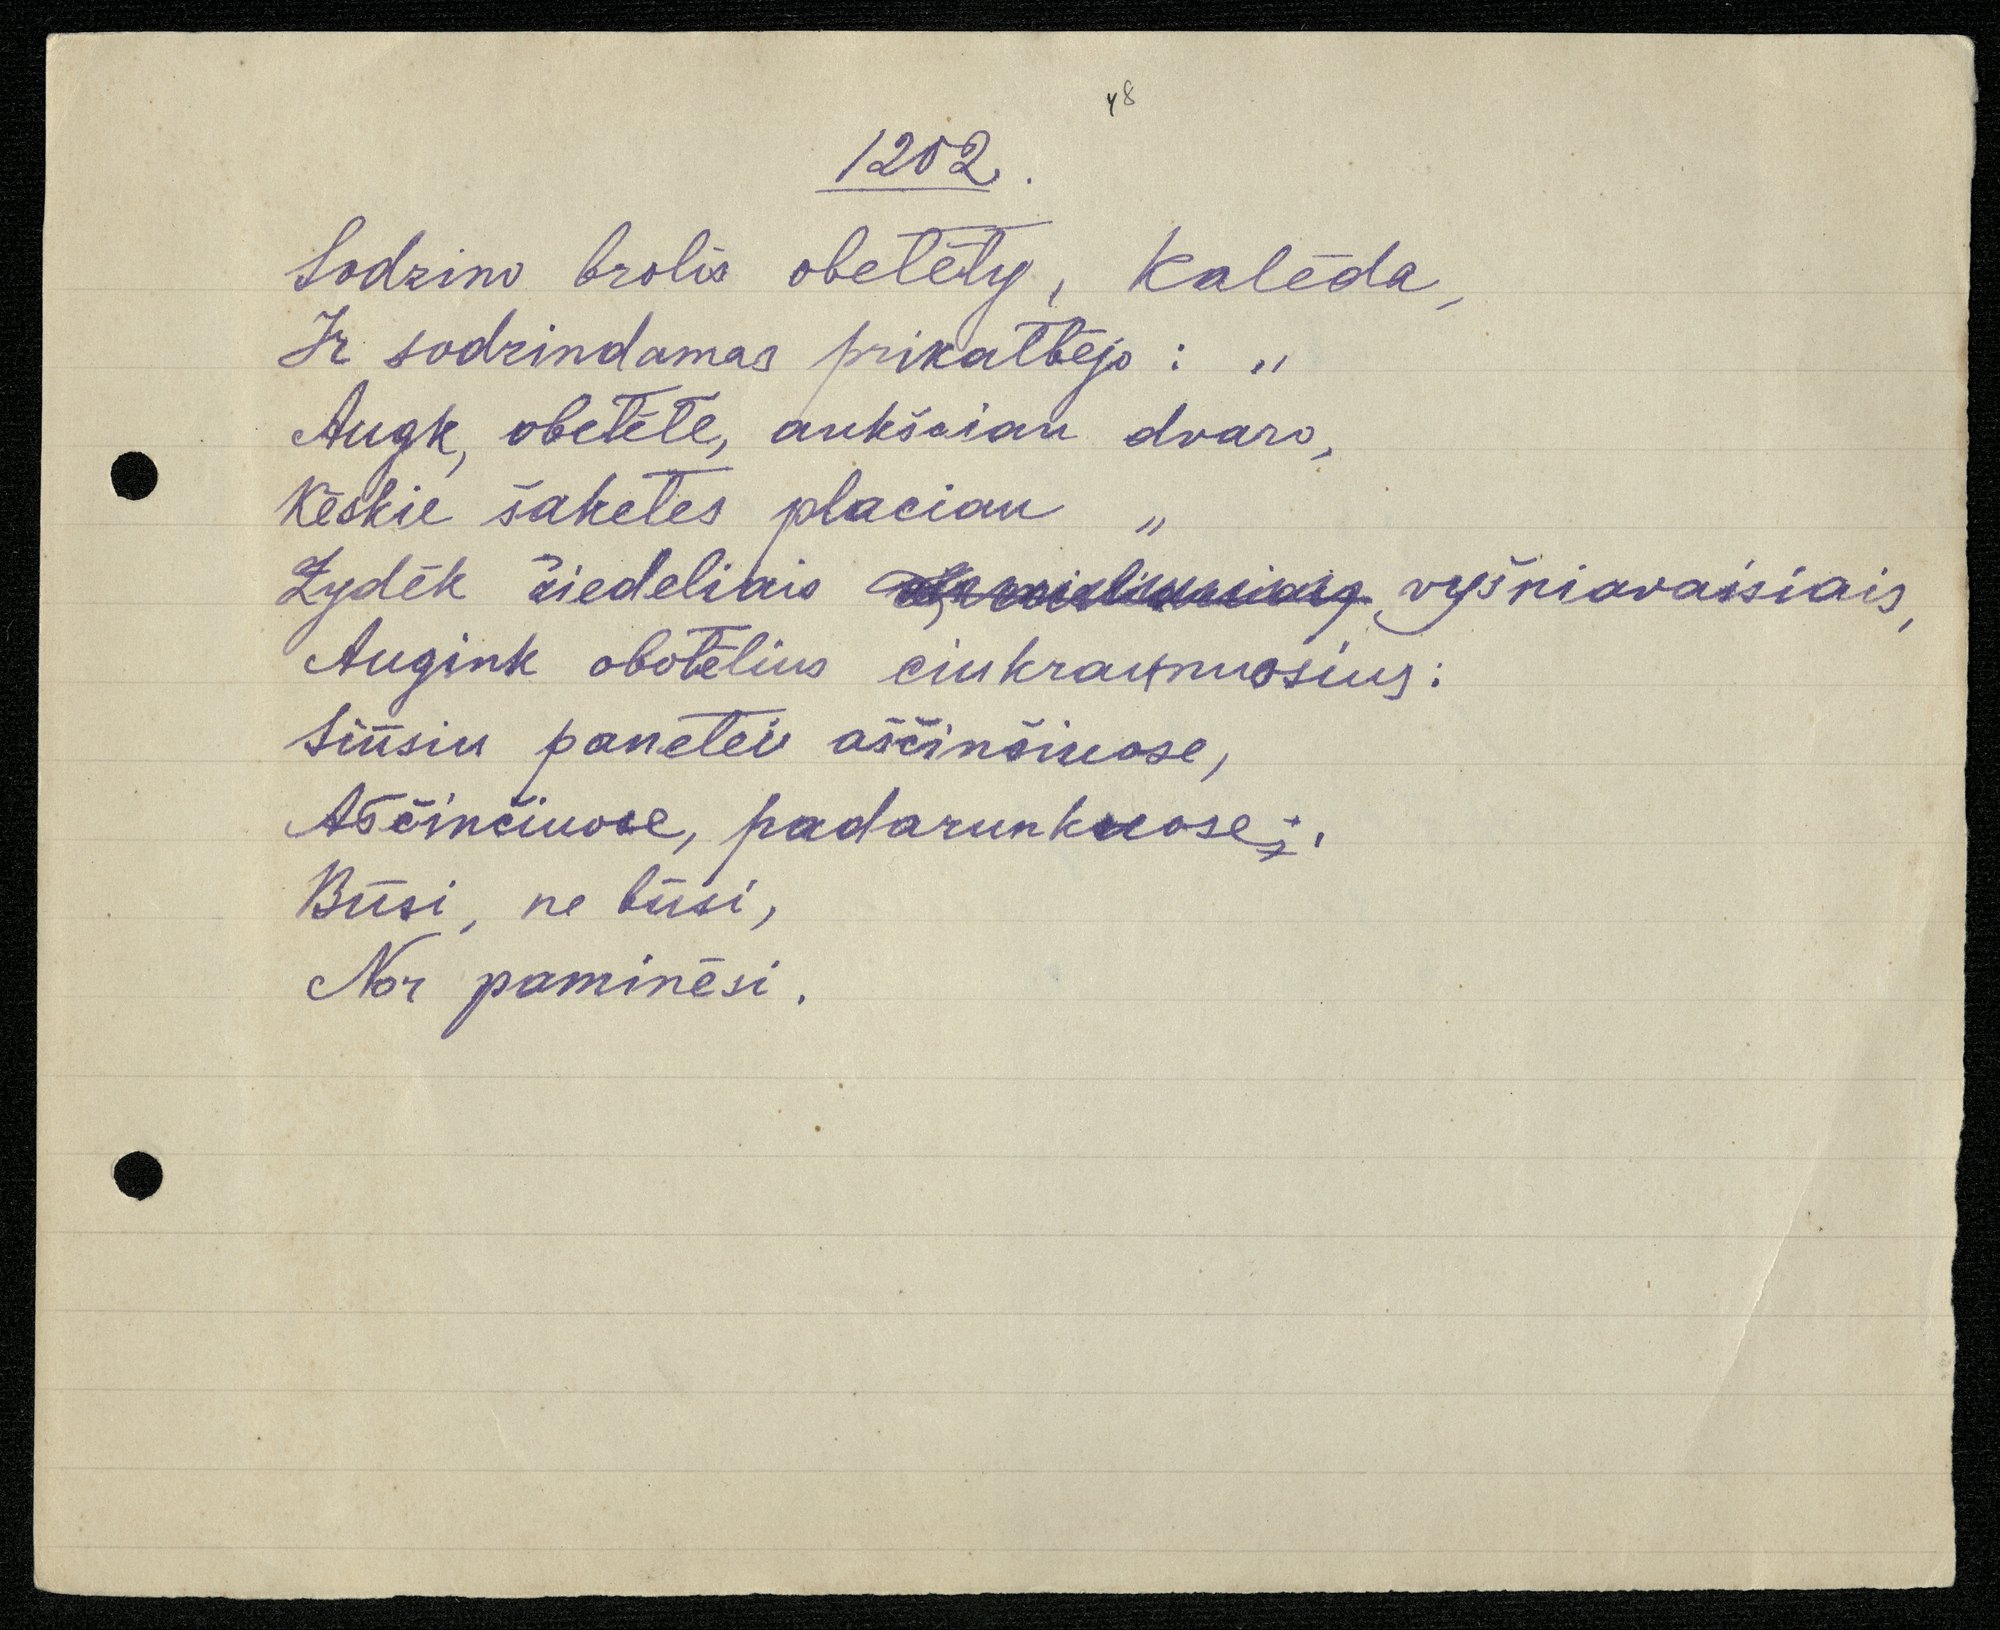 48
1202.
Sodzino brolis obełėły, Kalėda,
Ir sodzindamas prikałbėjo: „
Augk, obełėłe, aukšcian dvaro,
Kėskie šakełes płacian „
Zydėk žiedeliais vyšniavaisiais,
Augink obołėlius ciukraunuosius:
Siūsiu panełei aščinčiuose,
Aščinčiuose, padarunkuose;.
Būsi, ne būsi,
Nor paminėsi.